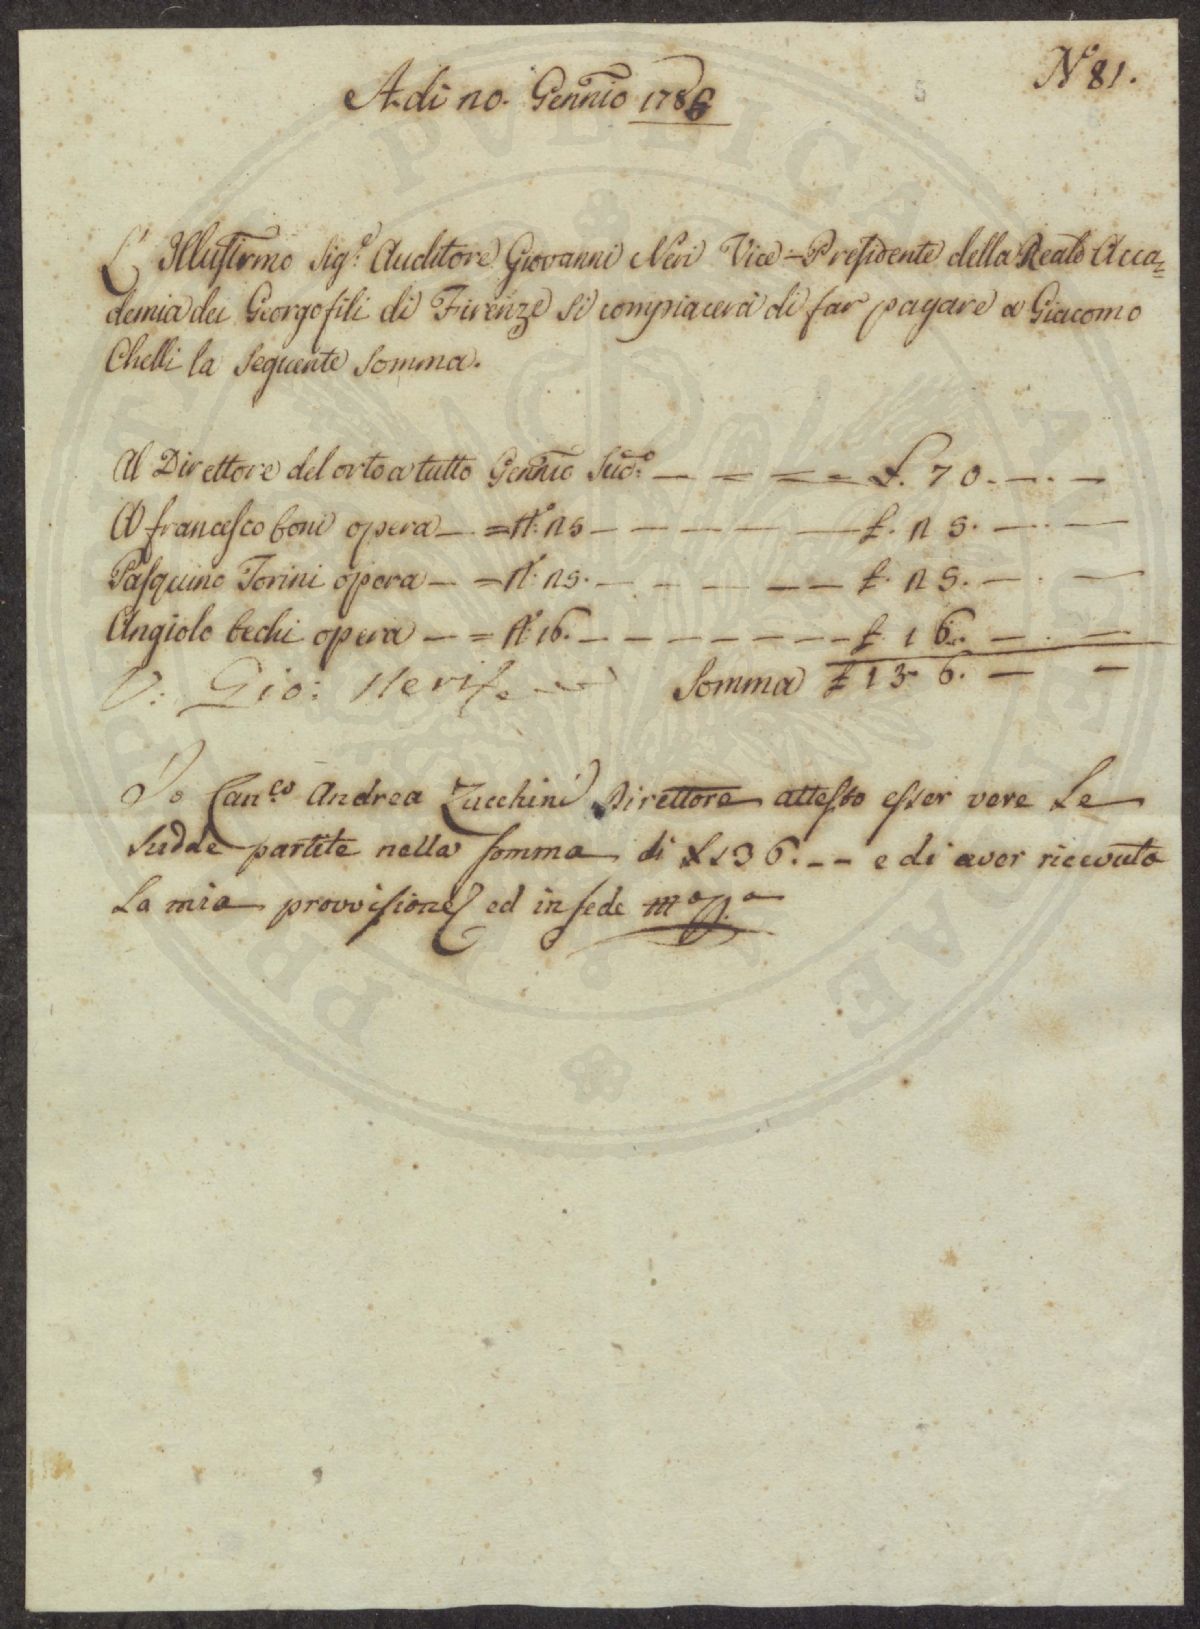 N.° 81.
A di 20. Gennio 1786
L' Illustrmo Sig.e Auditore Giovanni Neri Vice-Presidente della Reale Acca=
demia dei Georgofili di Firenze si compiacerà di far pagare a Giacomo
Chelli la seguente somma.
Al Direttore del orto a tutto Gennio Sud.o — — = = = £. 70. — . —
A francesco boni opera — = N.° 25 — — — — — — £. 25. — . —
Pasquino Torini opera — = N.° 25. — — — — — — £. 25. — . —
Angiolo bechi opera — = N.° 16. — — — — — — — £. 16. — . —
V: Gio: Neri Somma £ 136. — —
Io Can.co Andrea Zucchini Direttore attesto esser vere Le
sudde partite nella somma di £136. — — e di aver ricevuto
La mia provvisione ed in fede m.o p.a
PROSPERITATI PVBLICAE AVGENDAE